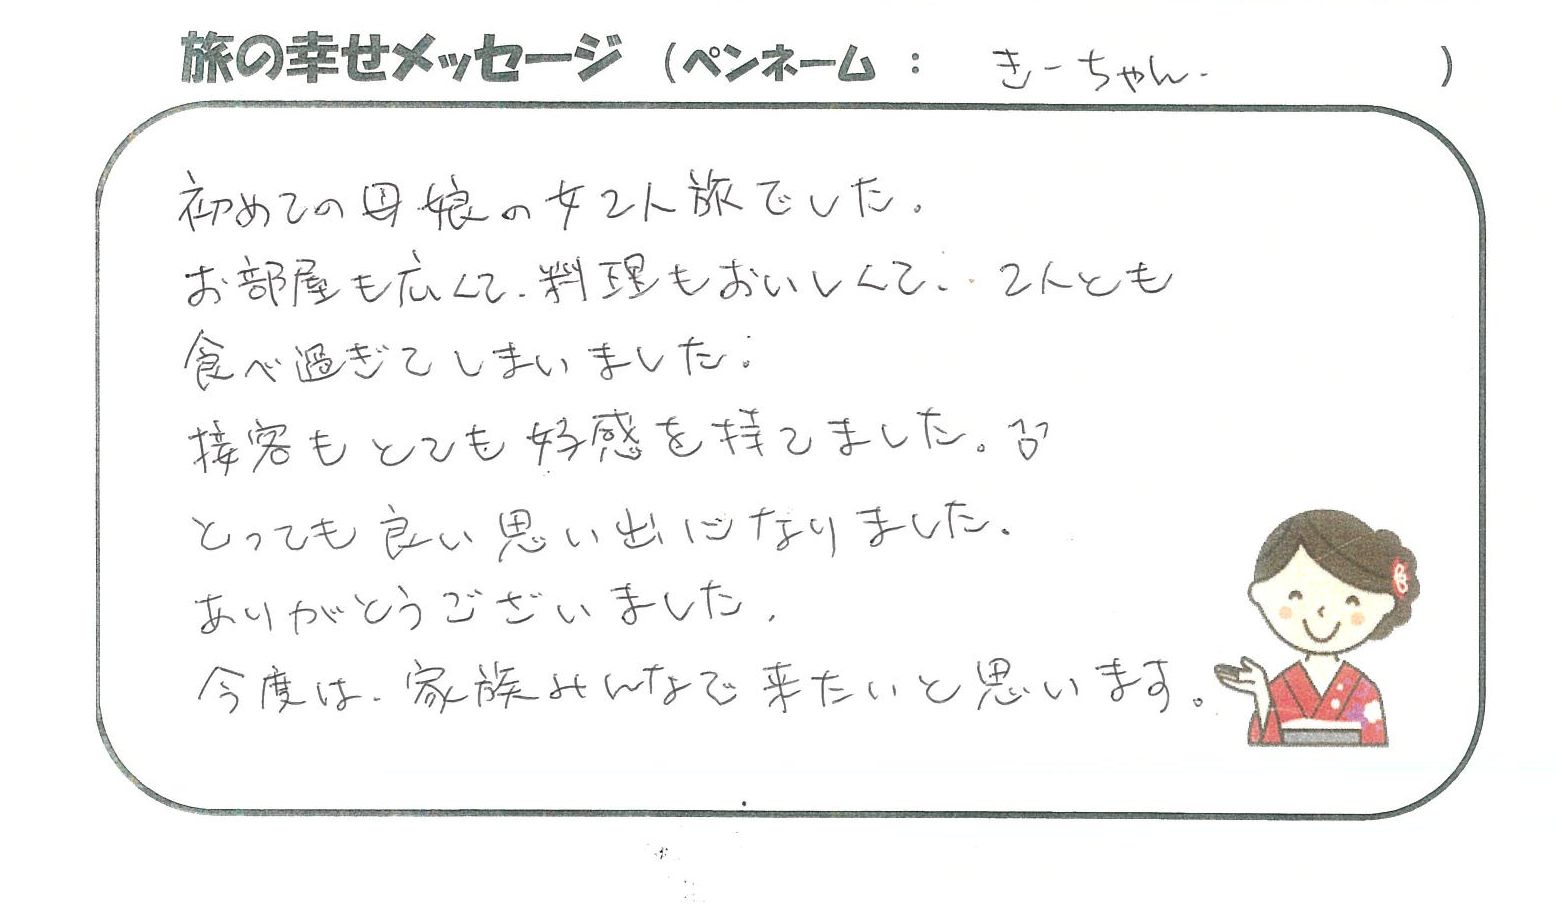 旅の幸せメッセージ (ペンネーム : きーちゃん. )
初めての母娘の女2人旅でした。
お部屋も広くて、料理もおいしくて、2人とも
食べ過ぎてしまいました。
接客もとても好感を持てました。
とっても良い思い出になりました。
ありがとうございました。
今度は、家族みんなで来たいと思います。